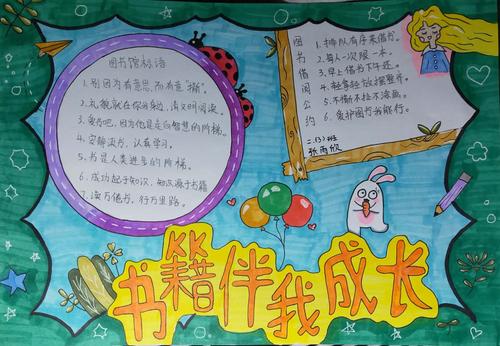 图书馆标语
1.别因为有意思,而有意"撕"。
2.礼貌就在你身轻,请文明阅读。
3.爱书吧,因为他是走向智慧的阶梯。
4.安静读书,认真学习。
5.书是人类进步的阶梯。
6.成功起于知识,知识源于书籍
7.读万卷书,行万里路。
图书借阅公约
1.排队有序来借书。
2.每人一次限一本。
3.早上借书下午还。
4.轻拿轻放摆整齐。
5.不撕不拉不涂画。
6.爱护图书我能行。
二.(3)班
书籍伴我成长